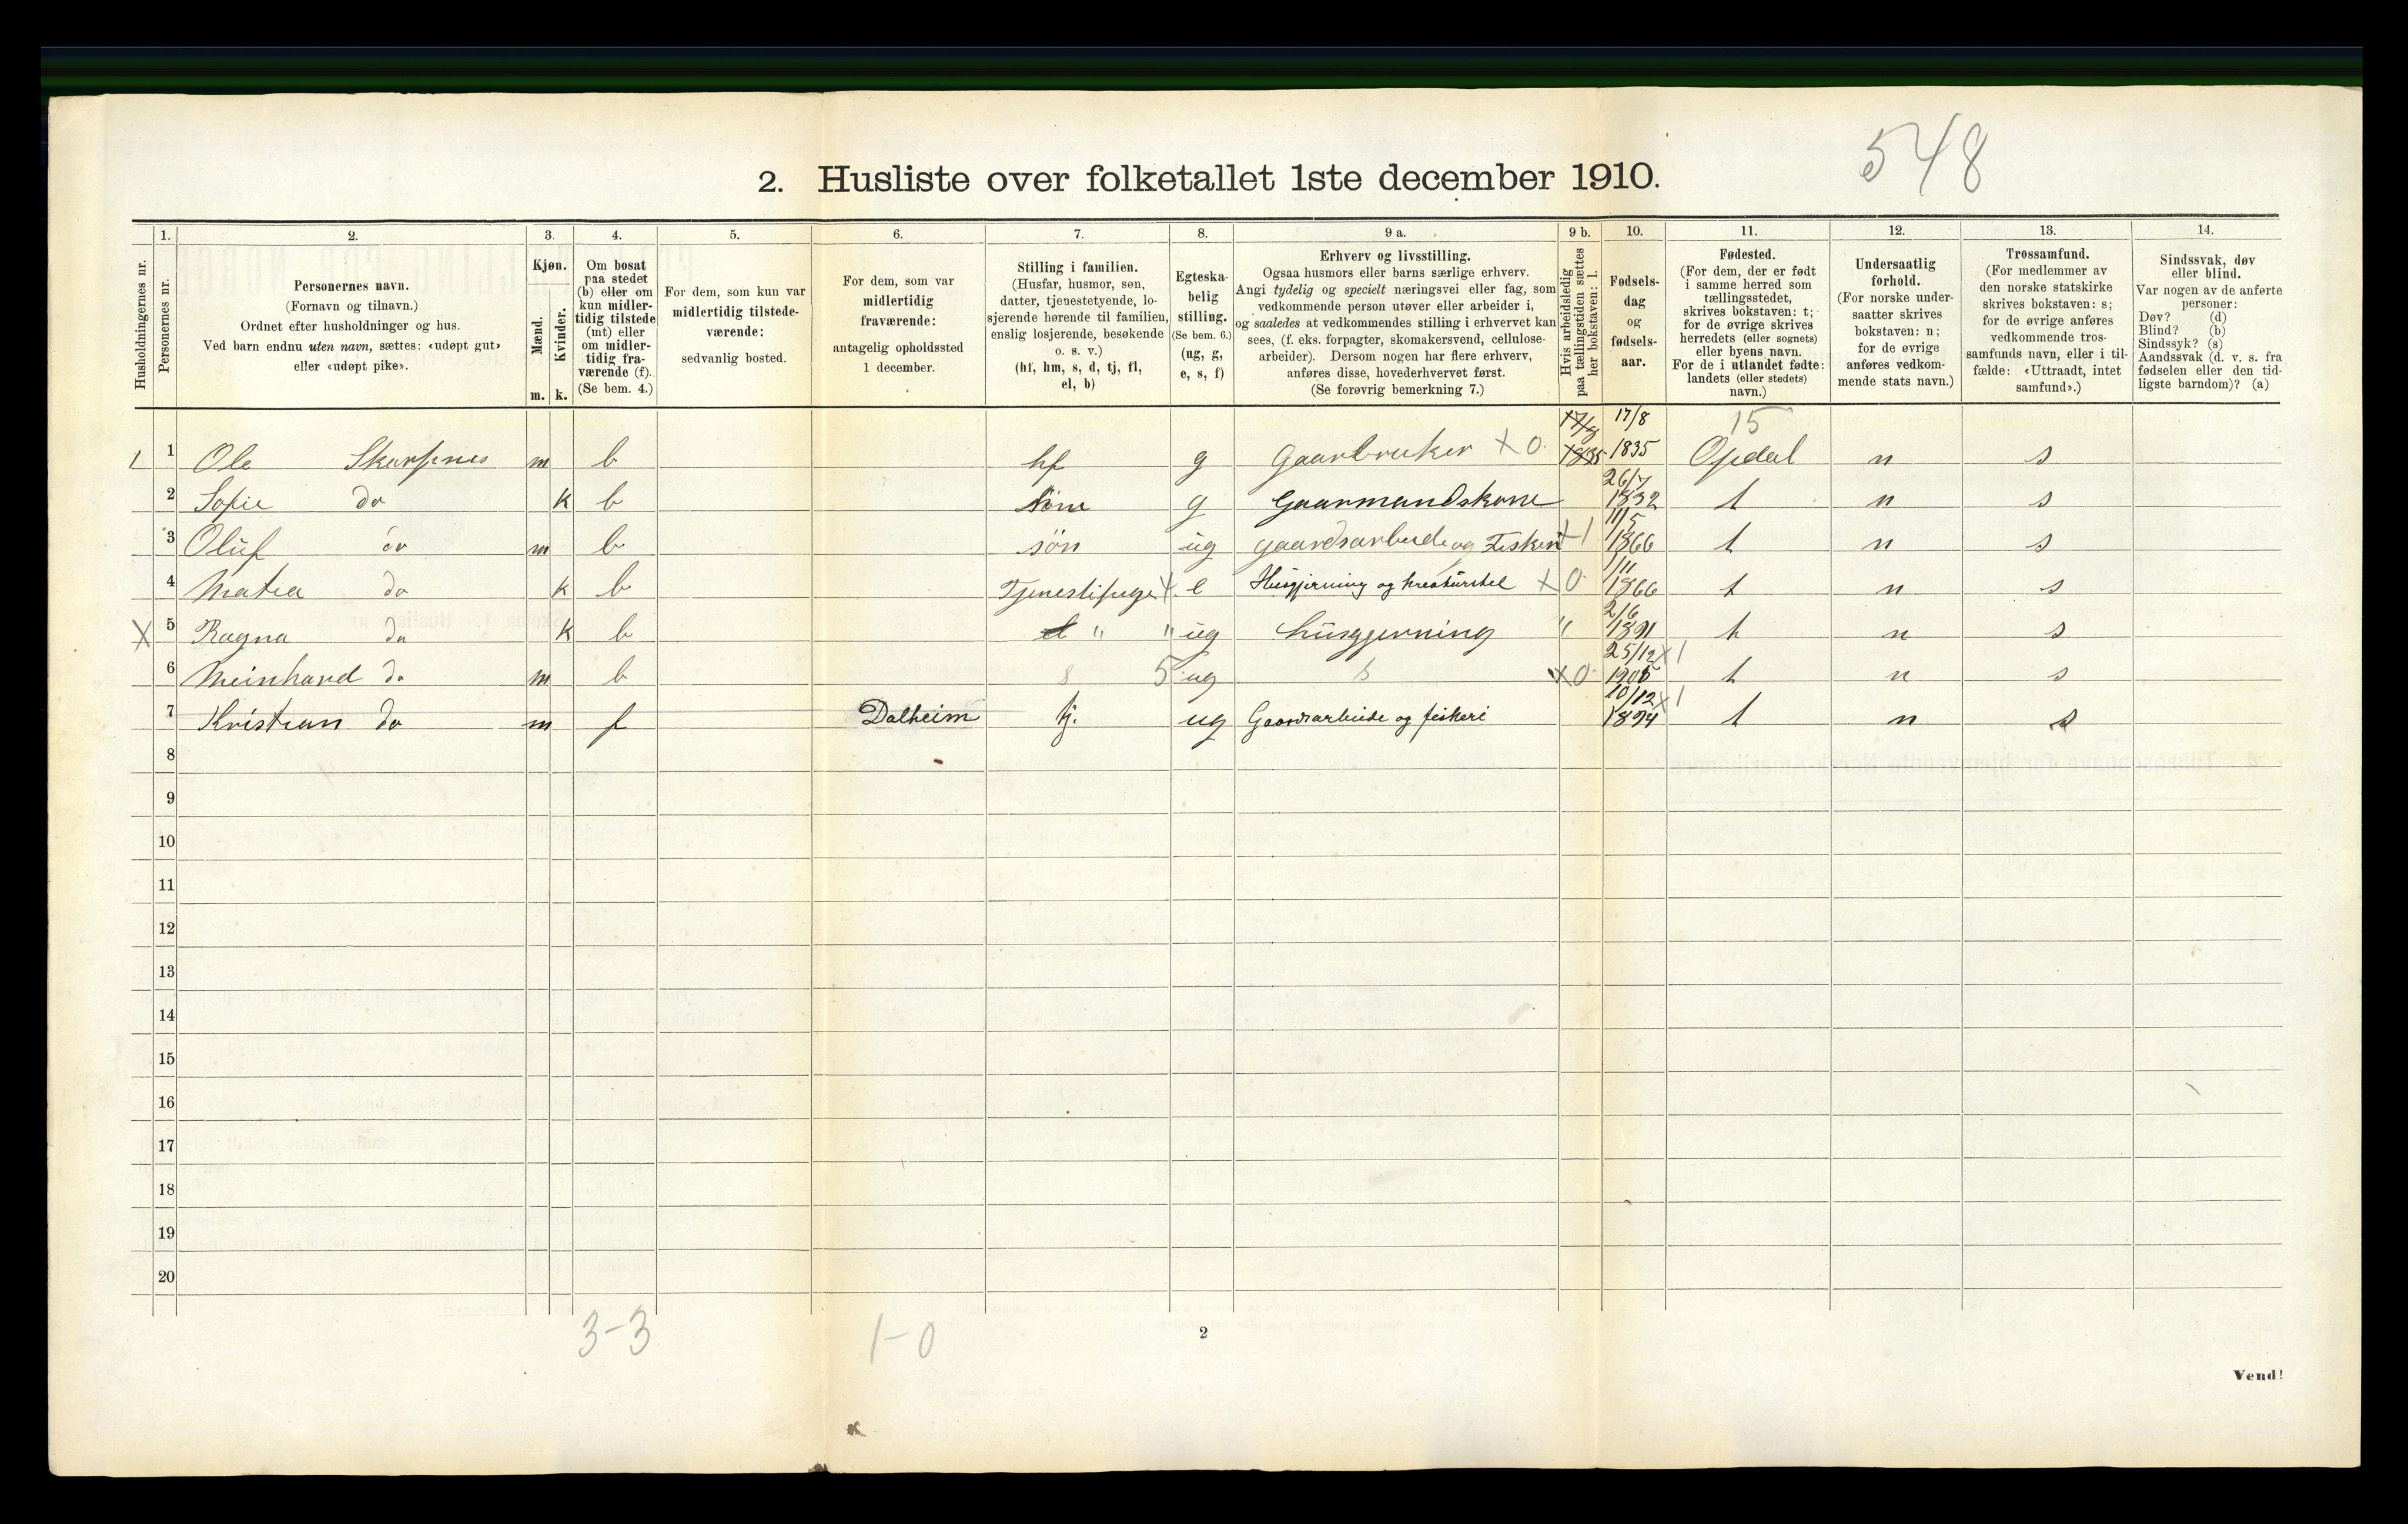 548
2. Husliste over folketallet 1ste december 1910.
Husholdningernes nr.
1.
Personernes nr.
2.
Personernes navn.
(Fornavn og tilnavn.)
Ordnet efter husholdninger og hus.
Ved barn endnu uten navn, sættes: «udøpt gut»
eller «udøpt pike».
3.
Kjøn.
Mænd.
Kvinder.
m. k.
4.
Om bosat
paa stedet
(b) eller om
kun midler-
tidig tilstede
(mt) eller
om midler-
tidig fra-
værende (f).
(Se bem. 4.)
5.
For dem, som kun var
midlertidig tilstede-
værende:
sedvanlig bosted.
6.
For dem, som var
midlertidig
fraværende:
antagelig opholdssted
1 december.
7.
Stilling i familien.
(Husfar, husmor, søn,
datter, tjenestetyende, lo-
sjerende hørende til familien,
enslig losjerende, besøkende
o. s. v.)
(hf, hm, s, d, tj, fl,
el, b)
8.
Egteska-
belig
stilling.
(Se bem. 6.)
(ug, g,
e, s, f)
9 a.
Erhverv og livsstilling.
Ogsaa husmors eller barns særlige erhverv.
Angi tydelig og specielt næringsvei eller fag, som
vedkommende person utøver eller arbeider i,
og saaledes at vedkommendes stilling i erhvervet kan
sees, (f. eks. forpagter, skomakersvend, cellulose-
arbeider). Dersom nogen har flere erhverv,
anføres disse, hovederhvervet først.
(Se forøvrig bemerkning 7.)
9 b.
Hvis arbeidsledig
paa tællingstiden sættes
her bokstaven: l.
10.
Fødsels-
dag
og
fødsels-
aar.
11.
Fødested.
(For dem, der er født
i samme herred som
tællingsstedet,
skrives bokstaven: t;
for de øvrige skrives
herredets (eller sognets)
eller byens navn.
For de i utlandet fødte:
landets (eller stedets)
navn.)
12.
Undersaatlig
forhold.
(For norske under-
saatter skrives
bokstaven: n;
for de øvrige
anføres vedkom-
mende stats navn.)
13.
Trossamfund.
(For medlemmer av
den norske statskirke
skrives bokstaven: s;
for de øvrige anføres
vedkommende tros-
samfunds navn, eller i til-
fælde: «Uttraadt, intet
samfund».)
14.
Sindssvak, døv
eller blind.
Var nogen av de anførte
personer:
Døv? (d)
Blind? (b)
Sindssyk? (s)
Aandssvak (d. v. s. fra
fødselen eller den tid-
ligste barndom)? (a)
17/8 17/8 15
1 1 Ole Skarpnes m b hf g Gaarbruker x 0 1835 1835 Opdal n s
26/7
2 Sofie do k b g Gaarmandskone 1832 t n s
11/5
3 Oluf do m b søn ug gaardsarbeide og Fiskeri x 1 1866 t n s
1/11
4 Matea do k b e Husgjerning og kreaturstel x 0 1866 t n s
2/6
X 5 Ragna do k b " " ug husgjerning " 1891 t n s
25/12 x 1
6 Meinhard do m b s 5 ug s x 0 t n s
10/12 x 1
7 Kristian do m f Dalheim tj. ug Gaardsarbeide og fiskeri 1894 t n s
8
9
10
11
12
13
14
15
16
17
18
19
20
3-3 1-0
2
Vend!